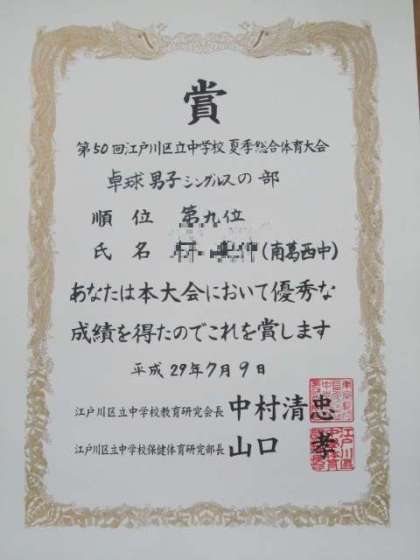 賞
第50回江戸川区立中学校夏季総合体育大会
卓球男子シングルスの部
順位 第九位
氏名 (南葛西中)
あなたは本大会において優秀な
成績を得たのでこれを賞します
平成29年7月9日
江戸川区立中学校教育研究会長 中村清忠
江戸川区立中学校保健体育研究部長 山口孝